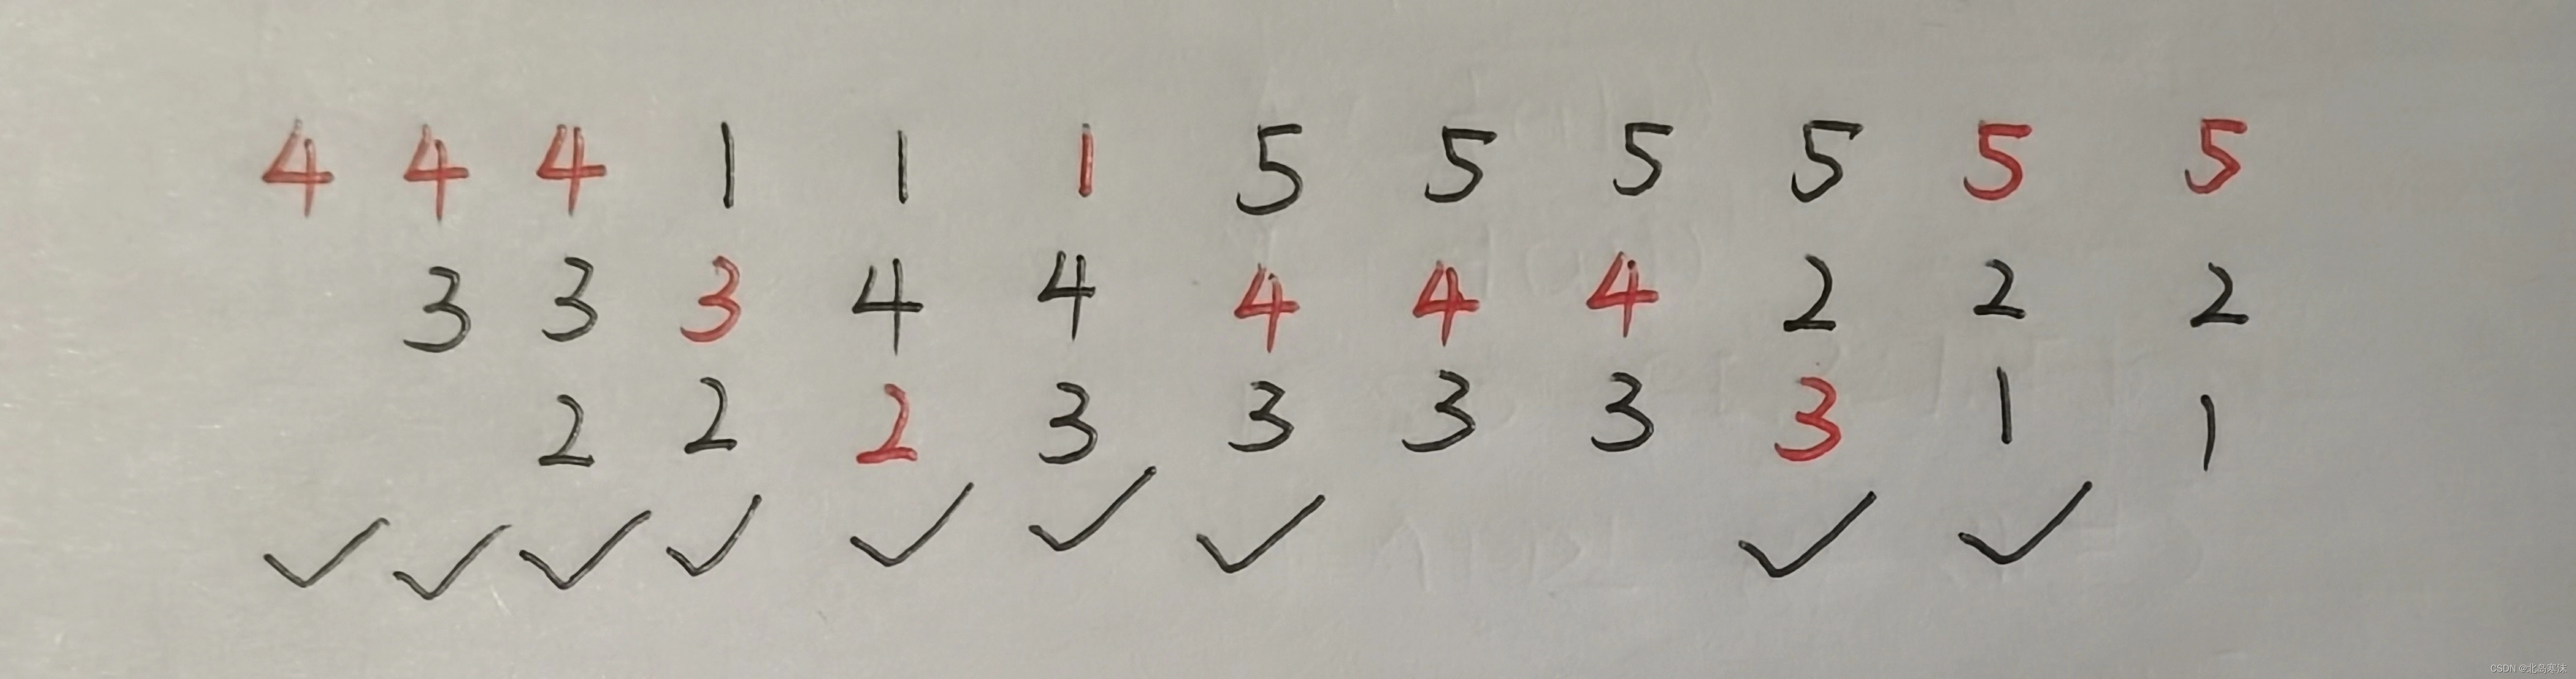 4 4 4 1 1 1 5 5 5 5 5 5
3 3 3 4 4 4 4 4 2 2 2
2 2 2 3 3 3 3 3 1 1
✓ ✓ ✓ ✓ ✓ ✓ ✓ ✓ ✓
CSDN @北岛寒沫